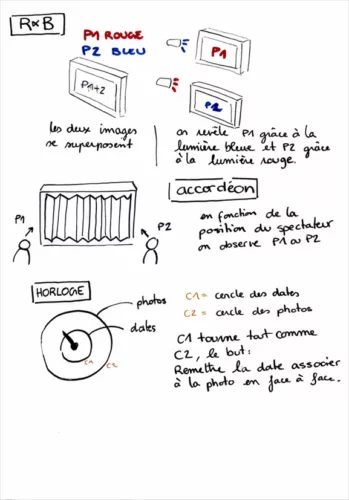 R×B
P1 ROUGE
P2 BLEU
P1
P1+2
P2
les deux images
se superposent
on revèle P1 grâce à la
lumière bleue et P2 grâce
à la lumière rouge.
accordéon
P1
P2
en fonction de la
position du spectateur
on observe P1 ou P2
HORLOGE
photos
dates
C1
C2
C1 = cercle des dates
C2 = cercle des photos
C1 tourne tout comme
C2, le but:
Remettre la date associer
à la photo en face à face.